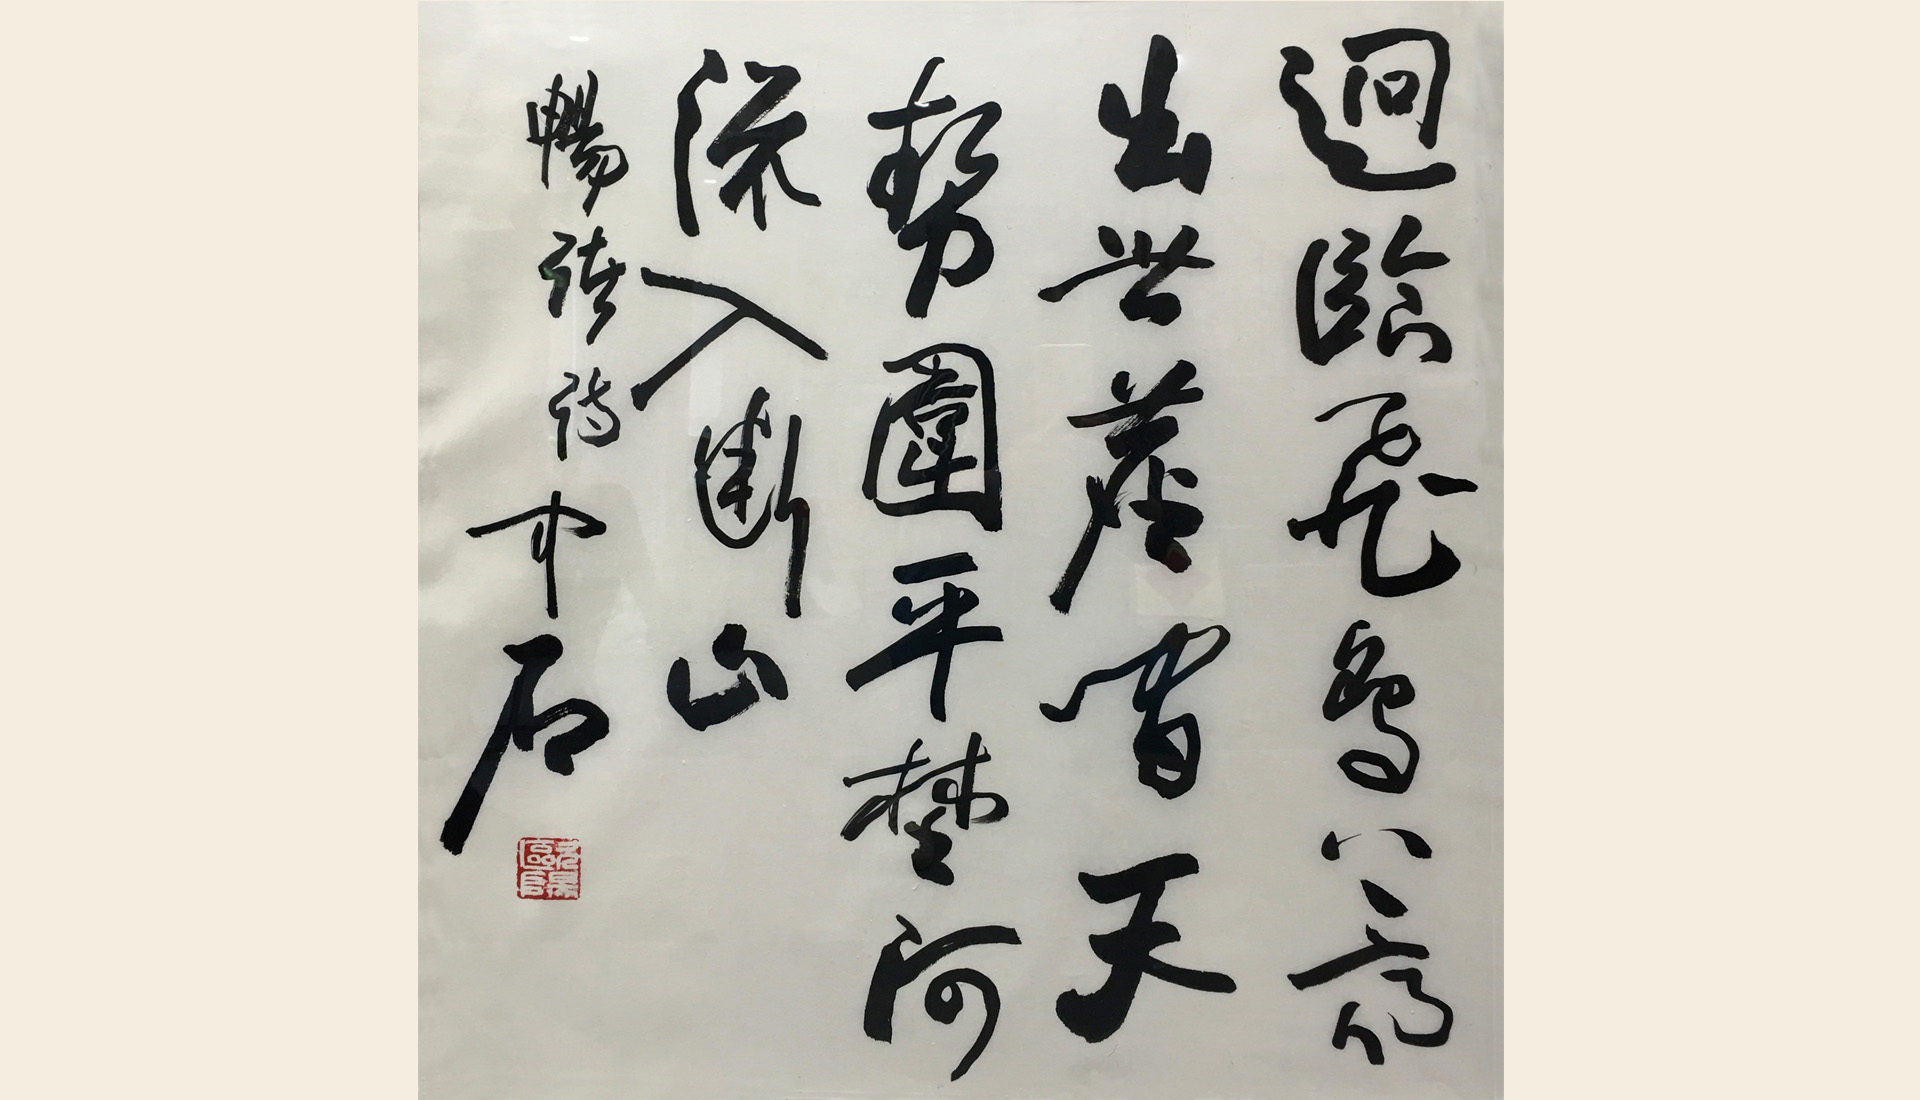 迥臨飛鳥上高
出世塵間天
勢圍平埜河
流入斷山
暢諸詩中石